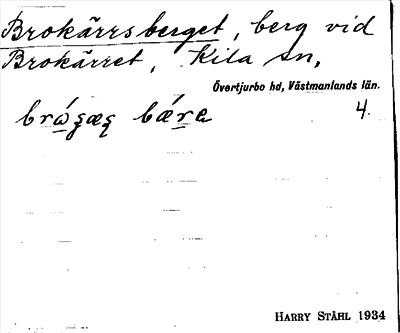 Brokärrsberget, berg vid
Brokärret, Kila sn,
Övertjurbo hd, Västmanlands län.
4.
HARRY STÅHL 1934